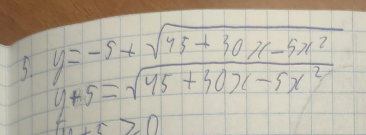 5. y = -5 + √(45 + 30x - 5x²)
y + 5 = √(45 + 30x - 5x²)
y + 5 ≥ 0